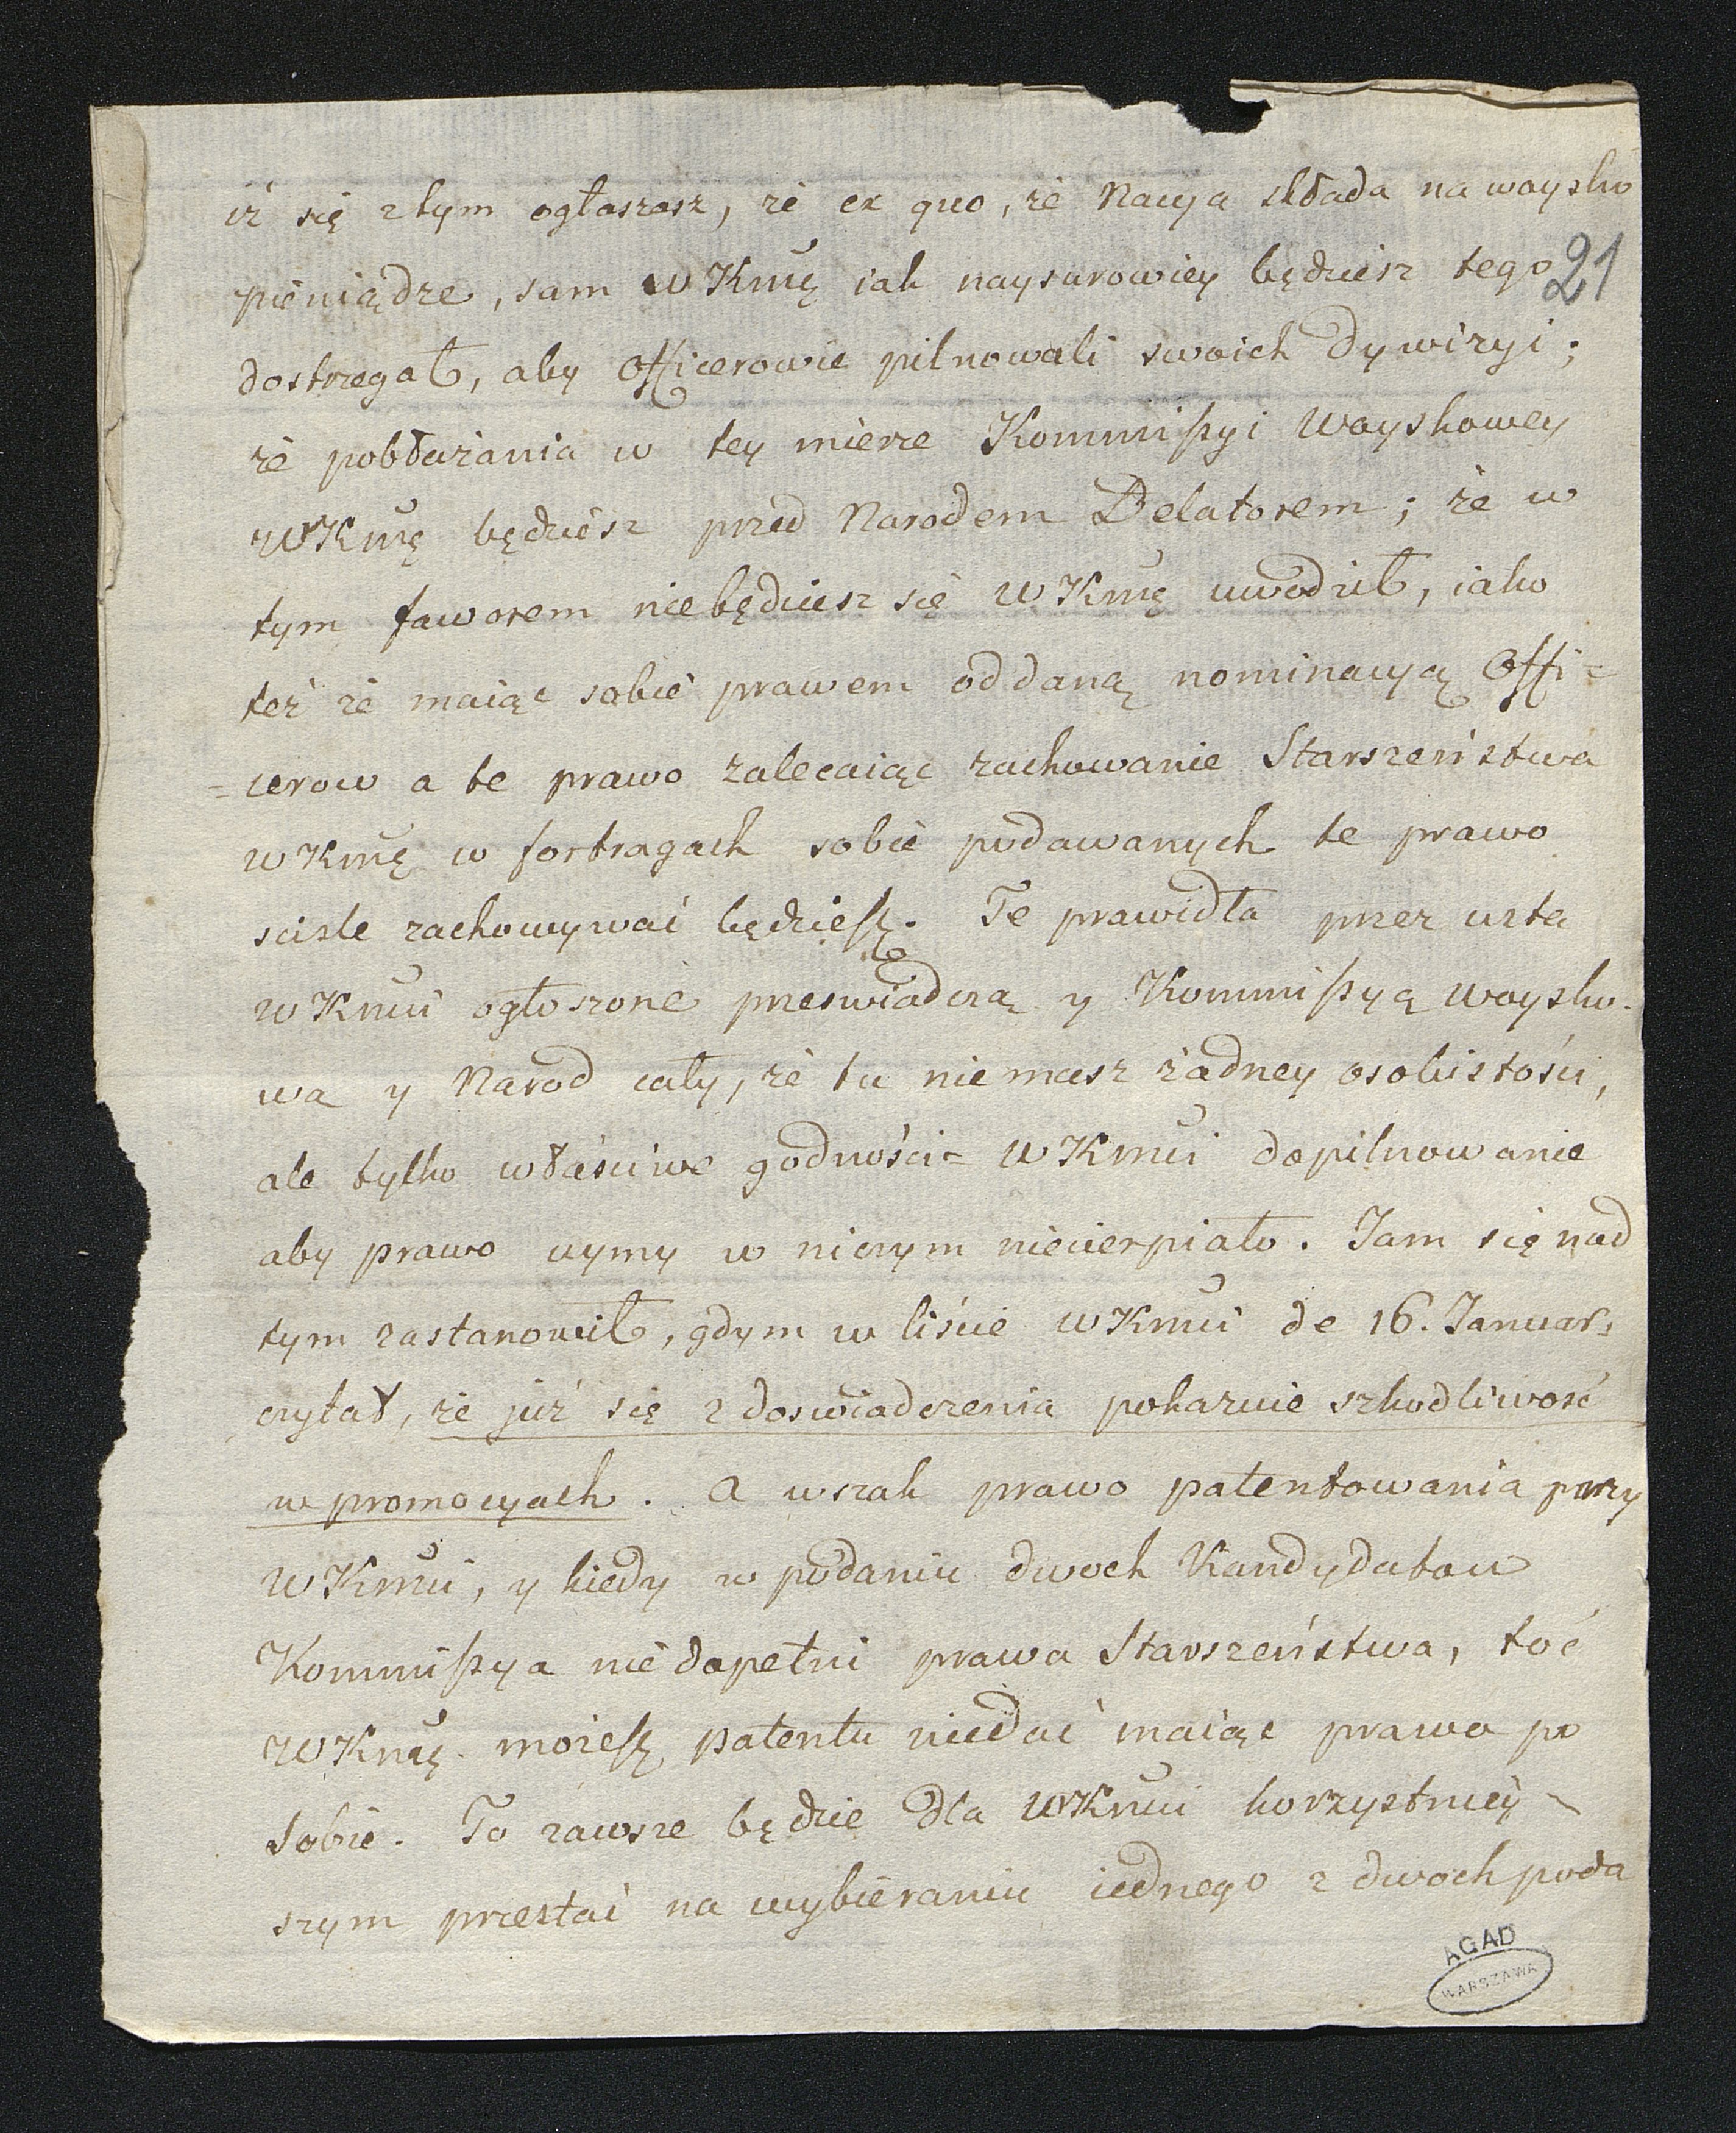 iż się z tym ogłaszasz, że ex quo, że Nacya składa na woysko
21
pieniądze, sam WKmę iak naysurowiey będziesz tego
dostrzegał, aby Officerowie pilnowali swoich Dywizyi;
że pobłażania w tey mierze Kommißyi Woyskowey
WKmę będziesz przed Narodem Delatorem; że w
tym faworem niebędziesz się WKmę uwodził, iako
też że maiąc sobie prawem oddaną nominacyą Offi=
=cerow a te prawo zalecaiąc zachowanie Starszeństwa
WKmę w fortragach sobie podawanych te prawo
scisle zachowywać będzieſz. Te prawidła przez usta
WKmci ogłoszone przeswiadczą y Kommißyą Woysko-
wa y Narod cały, że tu nie masz żadney osobistości,
ale tylko właściwe godności= WKmci dopilnowanie
aby prawo uymy w niczym niecierpiało. Jam się nad
tym zastanowił, gdym w liście WKmci de 16. Januar:
czytał, że już się z doswiadczenia pokazuie szkodliwość
w promocyach. A wszak prawo patentowania przy
WKmci, y kiedy w podaniu dwoch Kandydatow
Kommißya nie dopełni prawa Starszeństwa, toć
WKmę możeſz patentu niedać maiąc prawo po
sobie. To zawsze będzie dla WKmci korzystniey
szym przestać na wybieraniu iednego z dwoch poda
AGAD
WARSZAWA